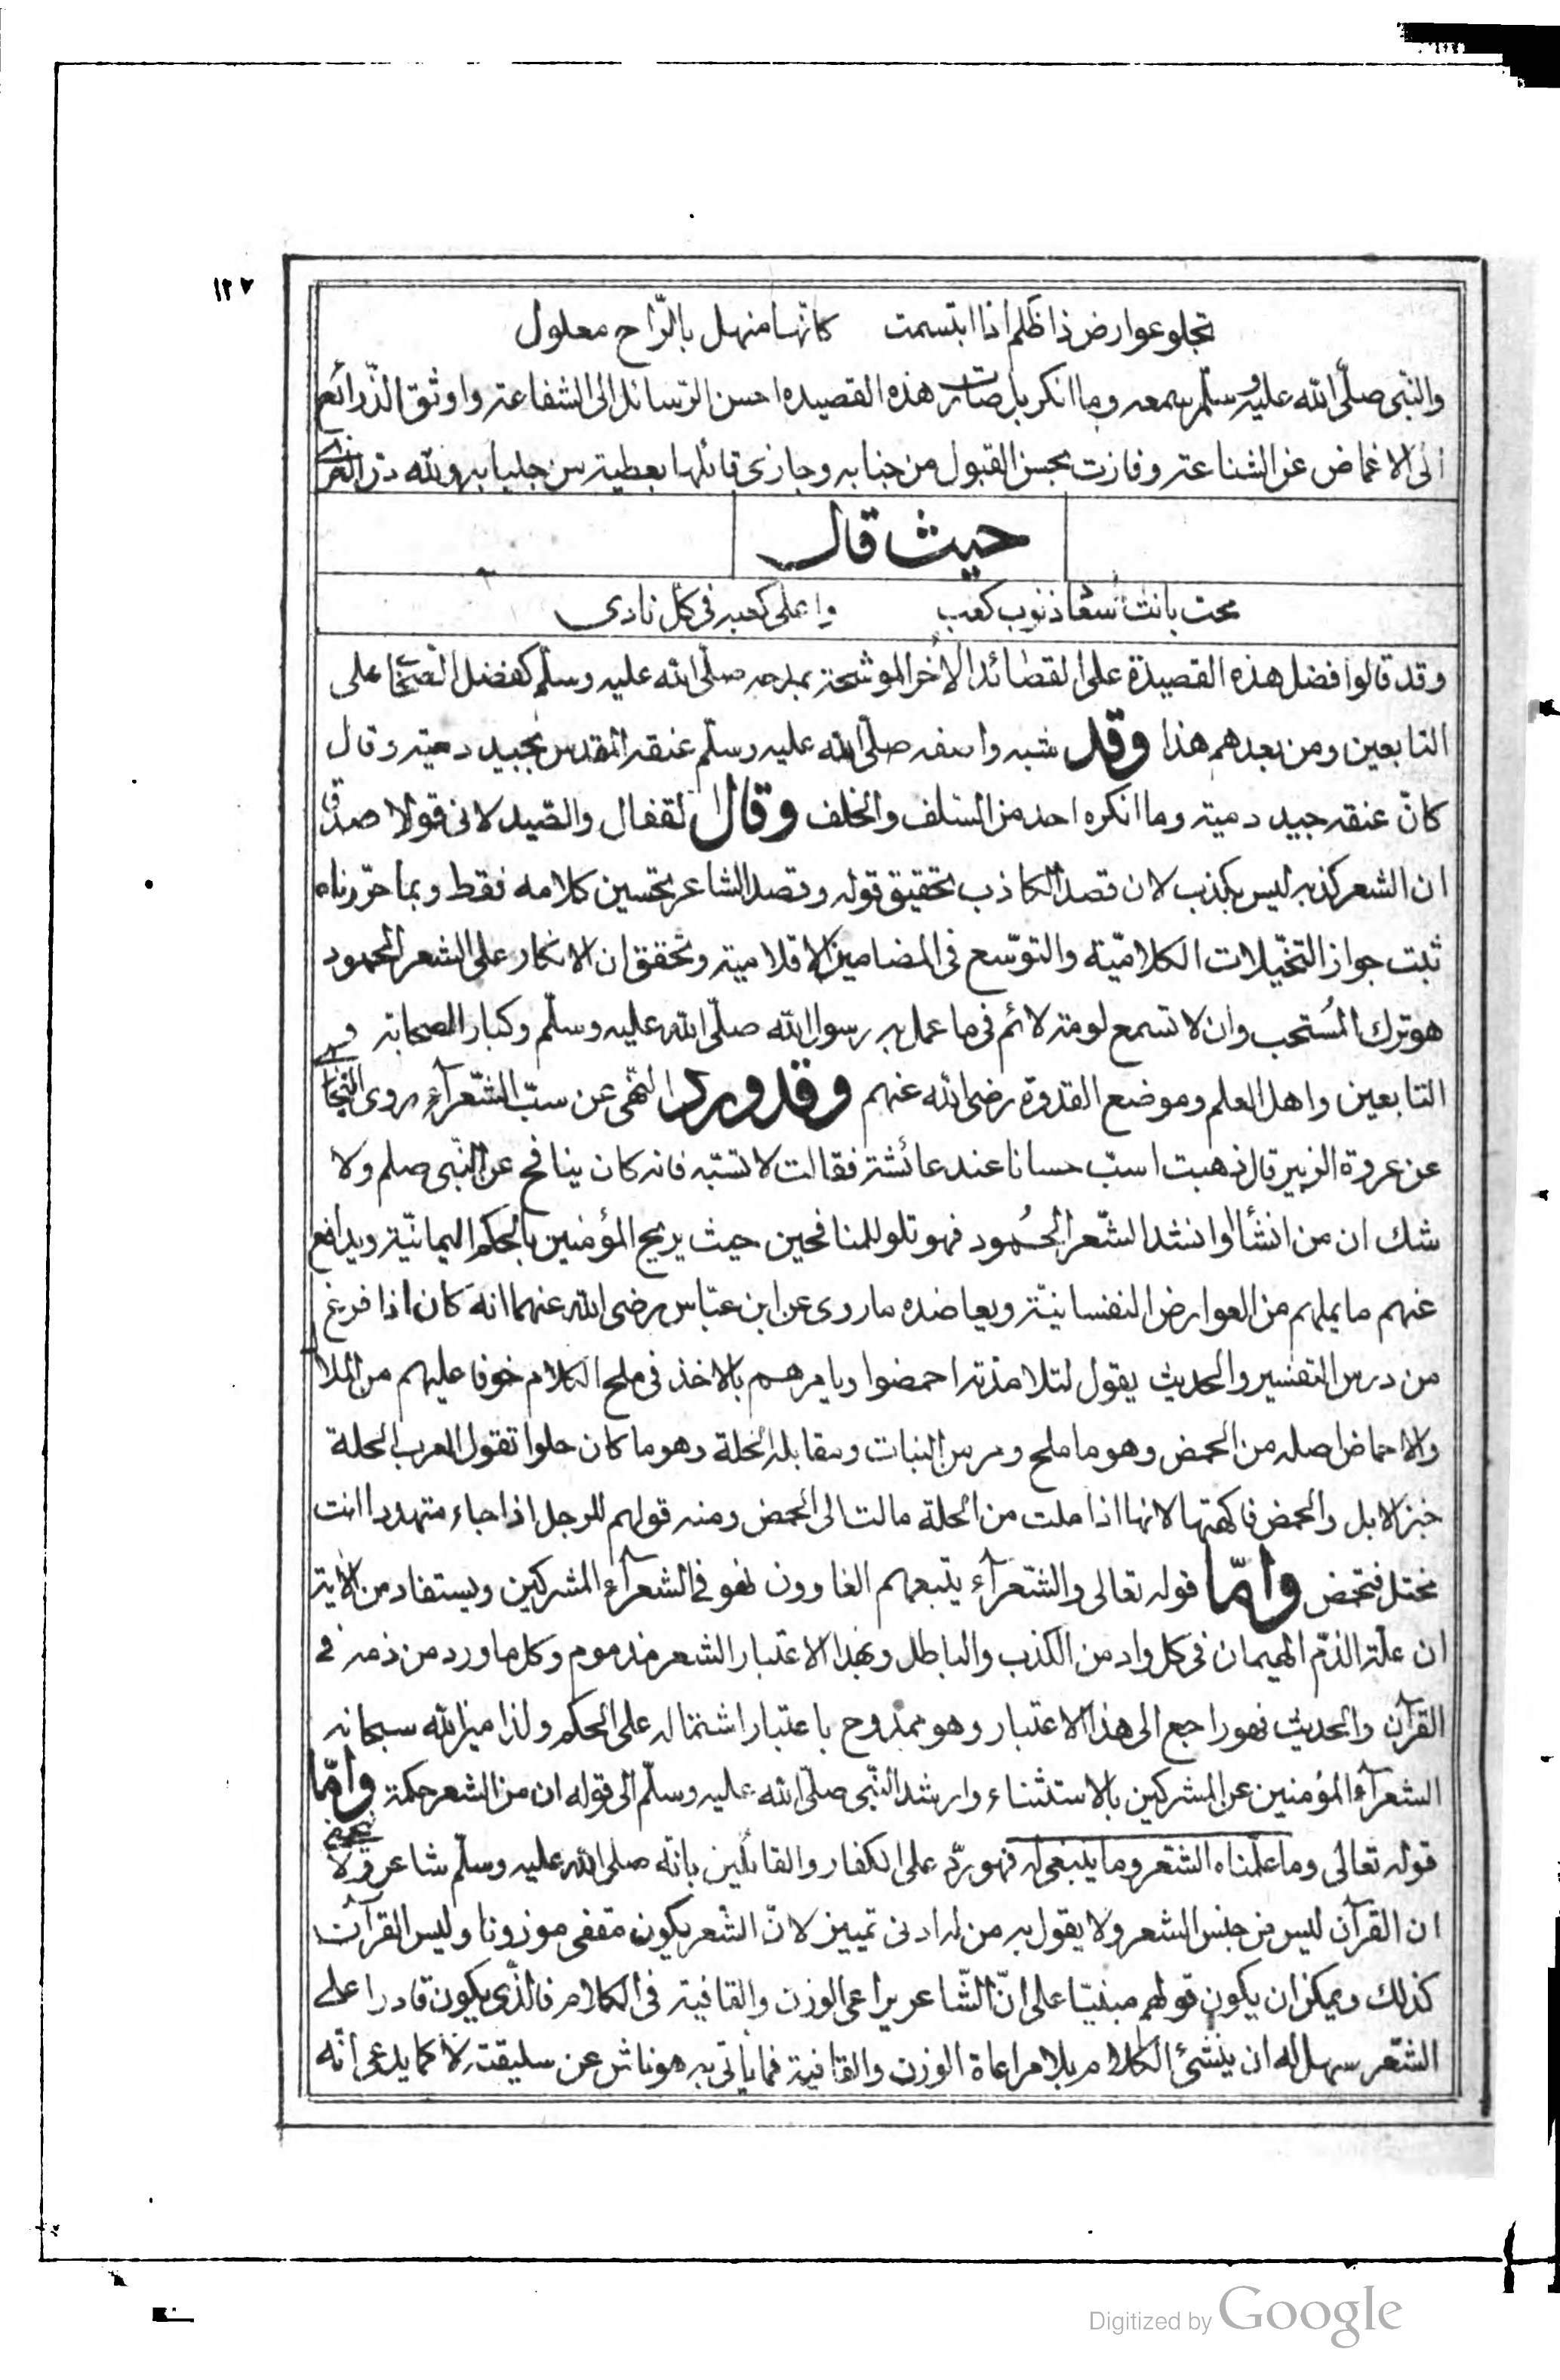 ١٢٧
تجلو عوارض ذا ظلم اذا ابتسمت كانها منهل بالرّاح معلول
والنّبى صلّى الله عليه وسلّم سمعه وما انكر بل صارت هذه القصيده احسن الرسائل الى الشفاعة واوثق الذّرائع
الى الاغماض عن الشناعة وفازت بحسن القبول من جنابه وجازى قائلها بعطية من جلبابه ولله درّ
حيث قال
محت بانت سُعاد ذنوب كعب واعلى كعبه فى كل نادى
وقد قالوا فضل هذه القصيدة على القصائد الأخر الموشحة بمدحه صلّى الله عليه وسلّم كفضل الصّحابة على
التابعين ومن بعدهم هذا وقد شبه واصفه صلّى الله عليه وسلّم عنقه المقدس بجيد دمية وقال
كانّ عنقه جيد دمية وما انكره احد من السّلف والخلف وقال القفال والصّيدلانى قولا صدقا
ان الشعر كذبه ليس بكذب لان قصد الكاذب تحقيق قوله وقصد الشاعر تحسين كلامه فقط وبما حرّرناه
ثبت جواز التخيّلات الكلاميّة والتوسّع فى المضامين الاقلامية وتحقق ان الانكار على الشعر المحمود
هو ترك المُستحب وان لا تسمع لومة لائم فى ما عمل به رسول الله صلّى الله عليه وسلّم وكبار الصحابة و
التابعين واهل العلم وموضع القدوة رضى الله عنهم وقد ورد النّهى عن سبّ الشّعرآء روى البخارى
عن عروة الزبير قال ذهبت اسبّ حسانا عند عائشة فقالت لا تسبّه فانه كان ينافح عن النّبى صلم ولا
شك ان من انشأ او انشد الشّعر المحُمود فهو تلو للمنافحين حيث يريح المؤمنين بالحكم اليمانيّة ويدافع
عنهم ما يملهم من العوارض النفسانيّة ويعاضده ما روى عن ابن عبّاس رضى الله عنهما انه كان اذا فرغ
من درس التفسير والحديث يقول لتلامذته احمضوا ويامرهم بالاخذ فى ملح الكلام خوفا عليهم من الملال
والاحماض اصله من الحمض وهو ما ملح ومر من النبات ومقابله الخلة وهو ما كان حلوا تقول العرب الخلة
خبز الابل والحمض فاكهتها لانها اذا ملت من الخلة مالت الى الحمض ومنه قولهم للرجل اذا جاء متهددا انت
مختل فتحمض وامّا قوله تعالى والشّعرآء يتبعهم الغاوون فهو فى الشعرآء المشركين ويستفاد من الاٰية
ان علّة الذّم الهيمان فى كل واد من الكذب والباطل وبهذا الاعتبار الشعر مذموم وكل ما ورد من ذمه فى
القرآن والحديث فهو راجع الى هذا الاعتبار وهو ممدوح باعتبار اشتماله على الحكم ولذا ميز الله سبحانه
الشعرآء المؤمنين عن المشركين بالاستثناء وارشد النّبى صلّى الله عليه وسلّم الى قوله ان من الشعر حكمة وامّا
قوله تعالى وما علّمناه الشّعر وما ينبغى له فهو ردّ على الكفار والقائلين بانّه صلى الله عليه وسلّم شاعر ولا يخفى
ان القرآن ليس من جنس الشعر ولا يقول به من له ادنى تمييز لانّ الشّعر يكون مقفى موزونا وليس القرآن
كذلك ويمكن ان يكون قولهم مبنيّا على انّ الشّاعر يراعى الوزن والقافية فى الكلام فالذّى يكون قادرا على
الشّعر سهل له ان ينشئ الكلام بلا مراعاة الوزن والقافية فما ياتى به هو ناش عن سليقته لا كما يدعى انّه
Digitized by Google